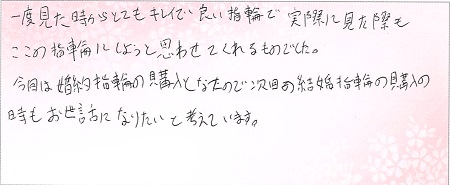 一度見た時からとてもキレイで良い指輪で実際に見た際も
ここの指輪にしようと思わせてくれるものでした。
今回は婚約指輪の購入となたので次回の結婚指輪の購入の
時もお世話になりたいと考えています。